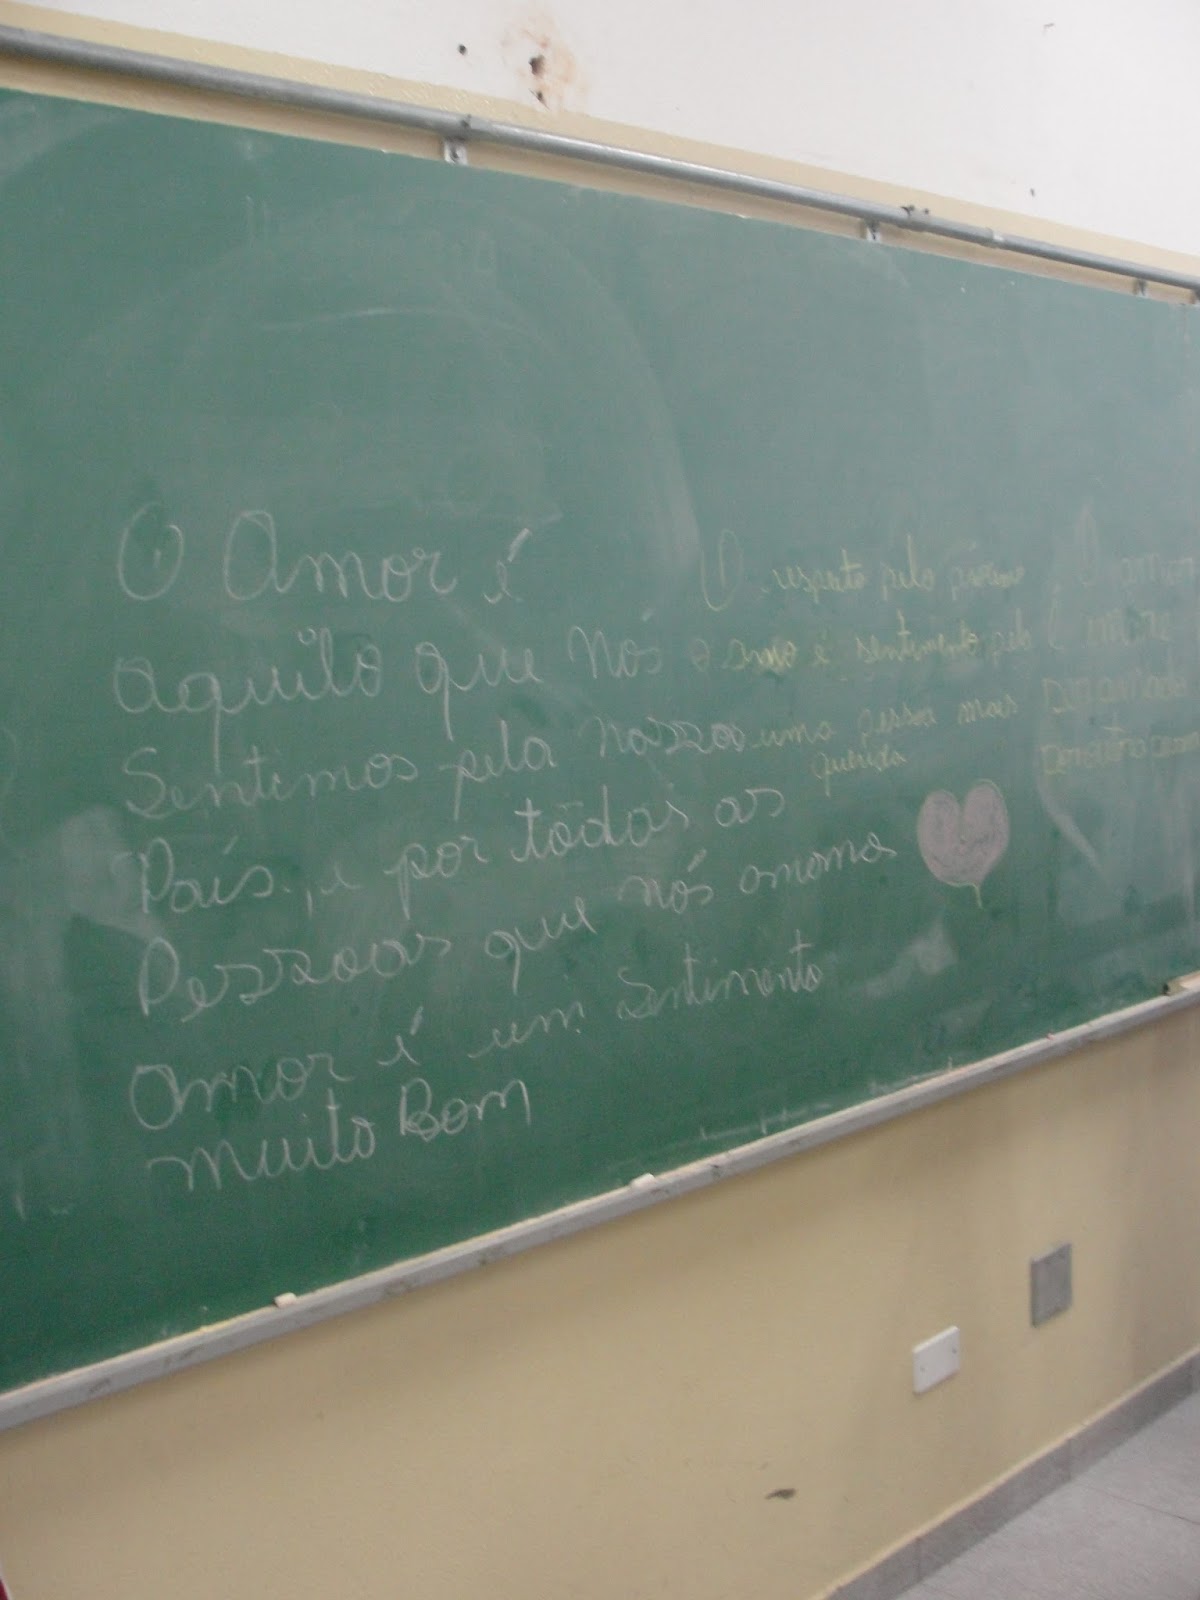 O Amor é
aquilo que Nós
Sentimos pela Nossos
País, e por todas as
Pessoas que nós amamos
amor é um Sentimento
muito Bom
O respeito pelo próximo
o amo é sentimento pelo
uma pessoa mais
querida
O amor
É